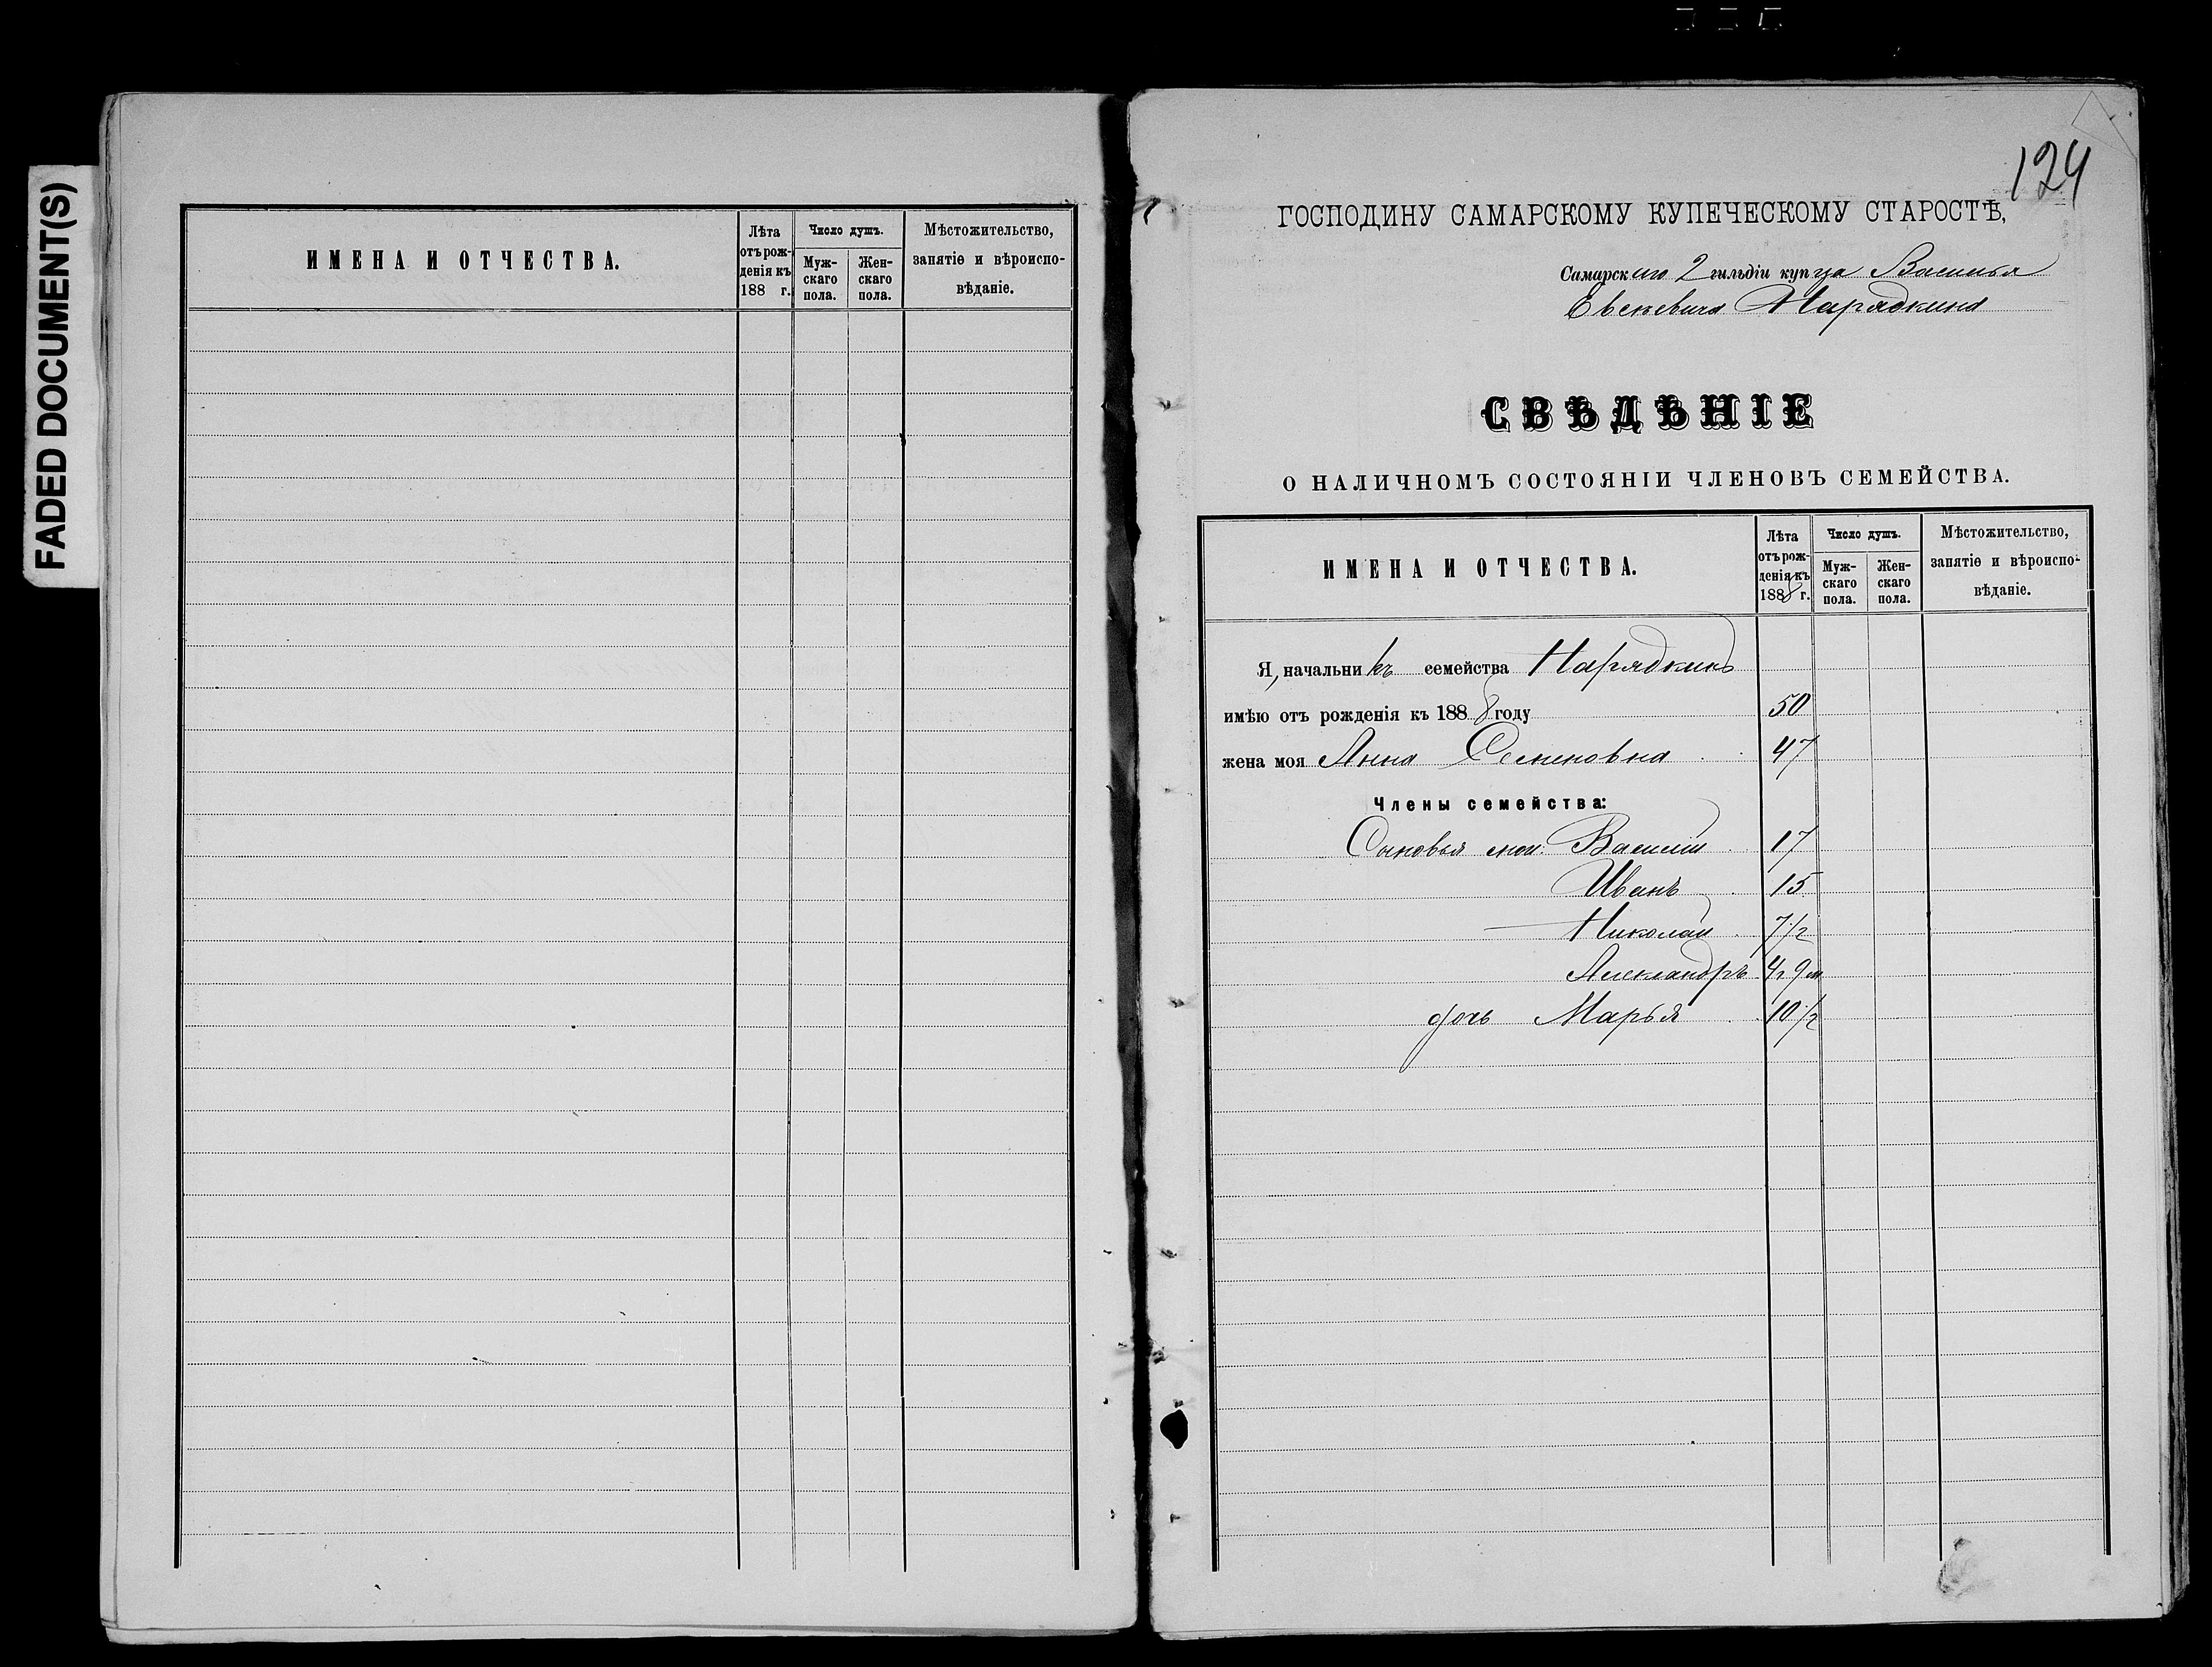 FADED DOCUMENT(S)
ИМЕНА И ОТЧЕСТВА.
Лѣта
отъ рож-
денія къ
188 г.
Число душъ.
Муж-
скаго
пола.
Жен-
скаго
пола.
Мѣстожительство,
занятіе и вѣроиспо-
вѣданіе.
124
ГОСПОДИНУ САМАРСКОМУ КУПЕЧЕСКОМУ СТАРОСТѢ,
Самарскаго 2 гильдіи купца Василья
Нарядкина
СВѢДѢНІЕ
О НАЛИЧНОМЪ СОСТОЯНІИ ЧЛЕНОВЪ СЕМЕЙСТВА.
ИМЕНА И ОТЧЕСТВА.
Лѣта
отъ рож-
денія къ
1888 г.
Число душъ.
Муж-
скаго
пола.
Жен-
скаго
пола.
Мѣстожительство,
занятіе и вѣроиспо-
вѣданіе.
Я, начальникъ семейства Нарядкинъ
имѣю отъ рожденія къ 1888 году 50
жена моя Анна Семеновна 47
Члены семейства:
Сыновья мои: Василій 17
Иванъ 15
Николай 7 1/2
Александръ 4 г 9 м
дочь Марья 10 1/2